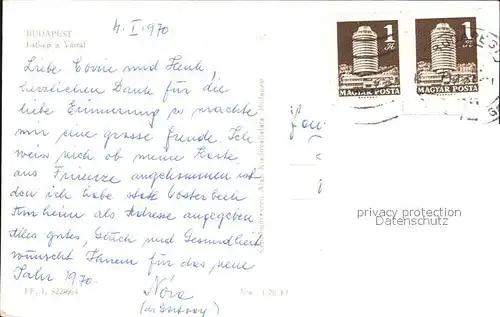 BUDAPEST
Látkép a Várral
4. I. 1970
Liebe Corrie und Henk,
herzlichen Dank für die
liebe Erinnerung es machte
mir eine grosse freude. Ich
weiss nich ob meine Karte
aus Firenze angekommen ist
den ich habe statt Oosterbeek
Arnheim als Adresse angegeben
Alles gutes, Glück und Gesundheit
wünscht Ihnen für das neue
Jahr 1970.
Nóra
1 Ft
MAGYAR POSTA
1 Ft
MAGYAR POSTA
privacy protection
Datenschutz